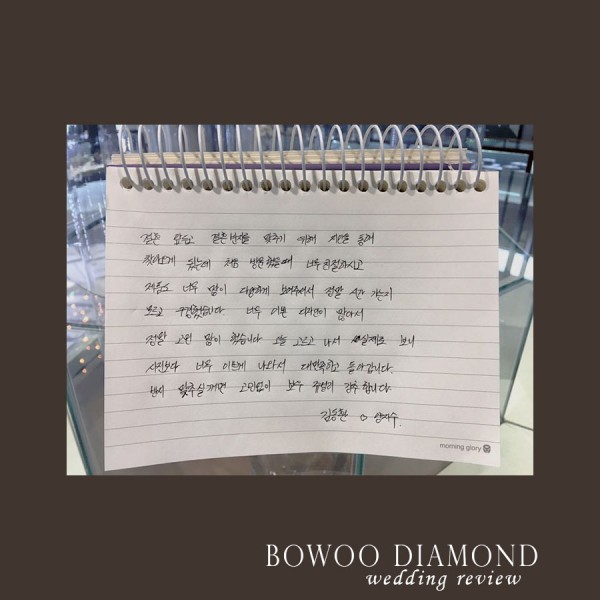 결혼 앞두고 결혼반지를 맞추기 위해 지인을 통해
찾아보게 됐는데 처음 방문했을때 너무 친절하시고
제품도 너무 많이 다양하게 보여주셔서 정말 시간 가는줄
모르고 구경했습니다. 너무 이쁜 디자인이 많아서
정말 고민 많이 했습니다 오늘 고르고 나서 실제로 보니
사진보다 너무 이쁘게 나와서 대만족하고 돌아갑니다.
반지 맞추실꺼면 고민없이 보우 종로점 강추 합니다.
김동환 ♡ 양지수.
morning glory
BOWOO DIAMOND
wedding review